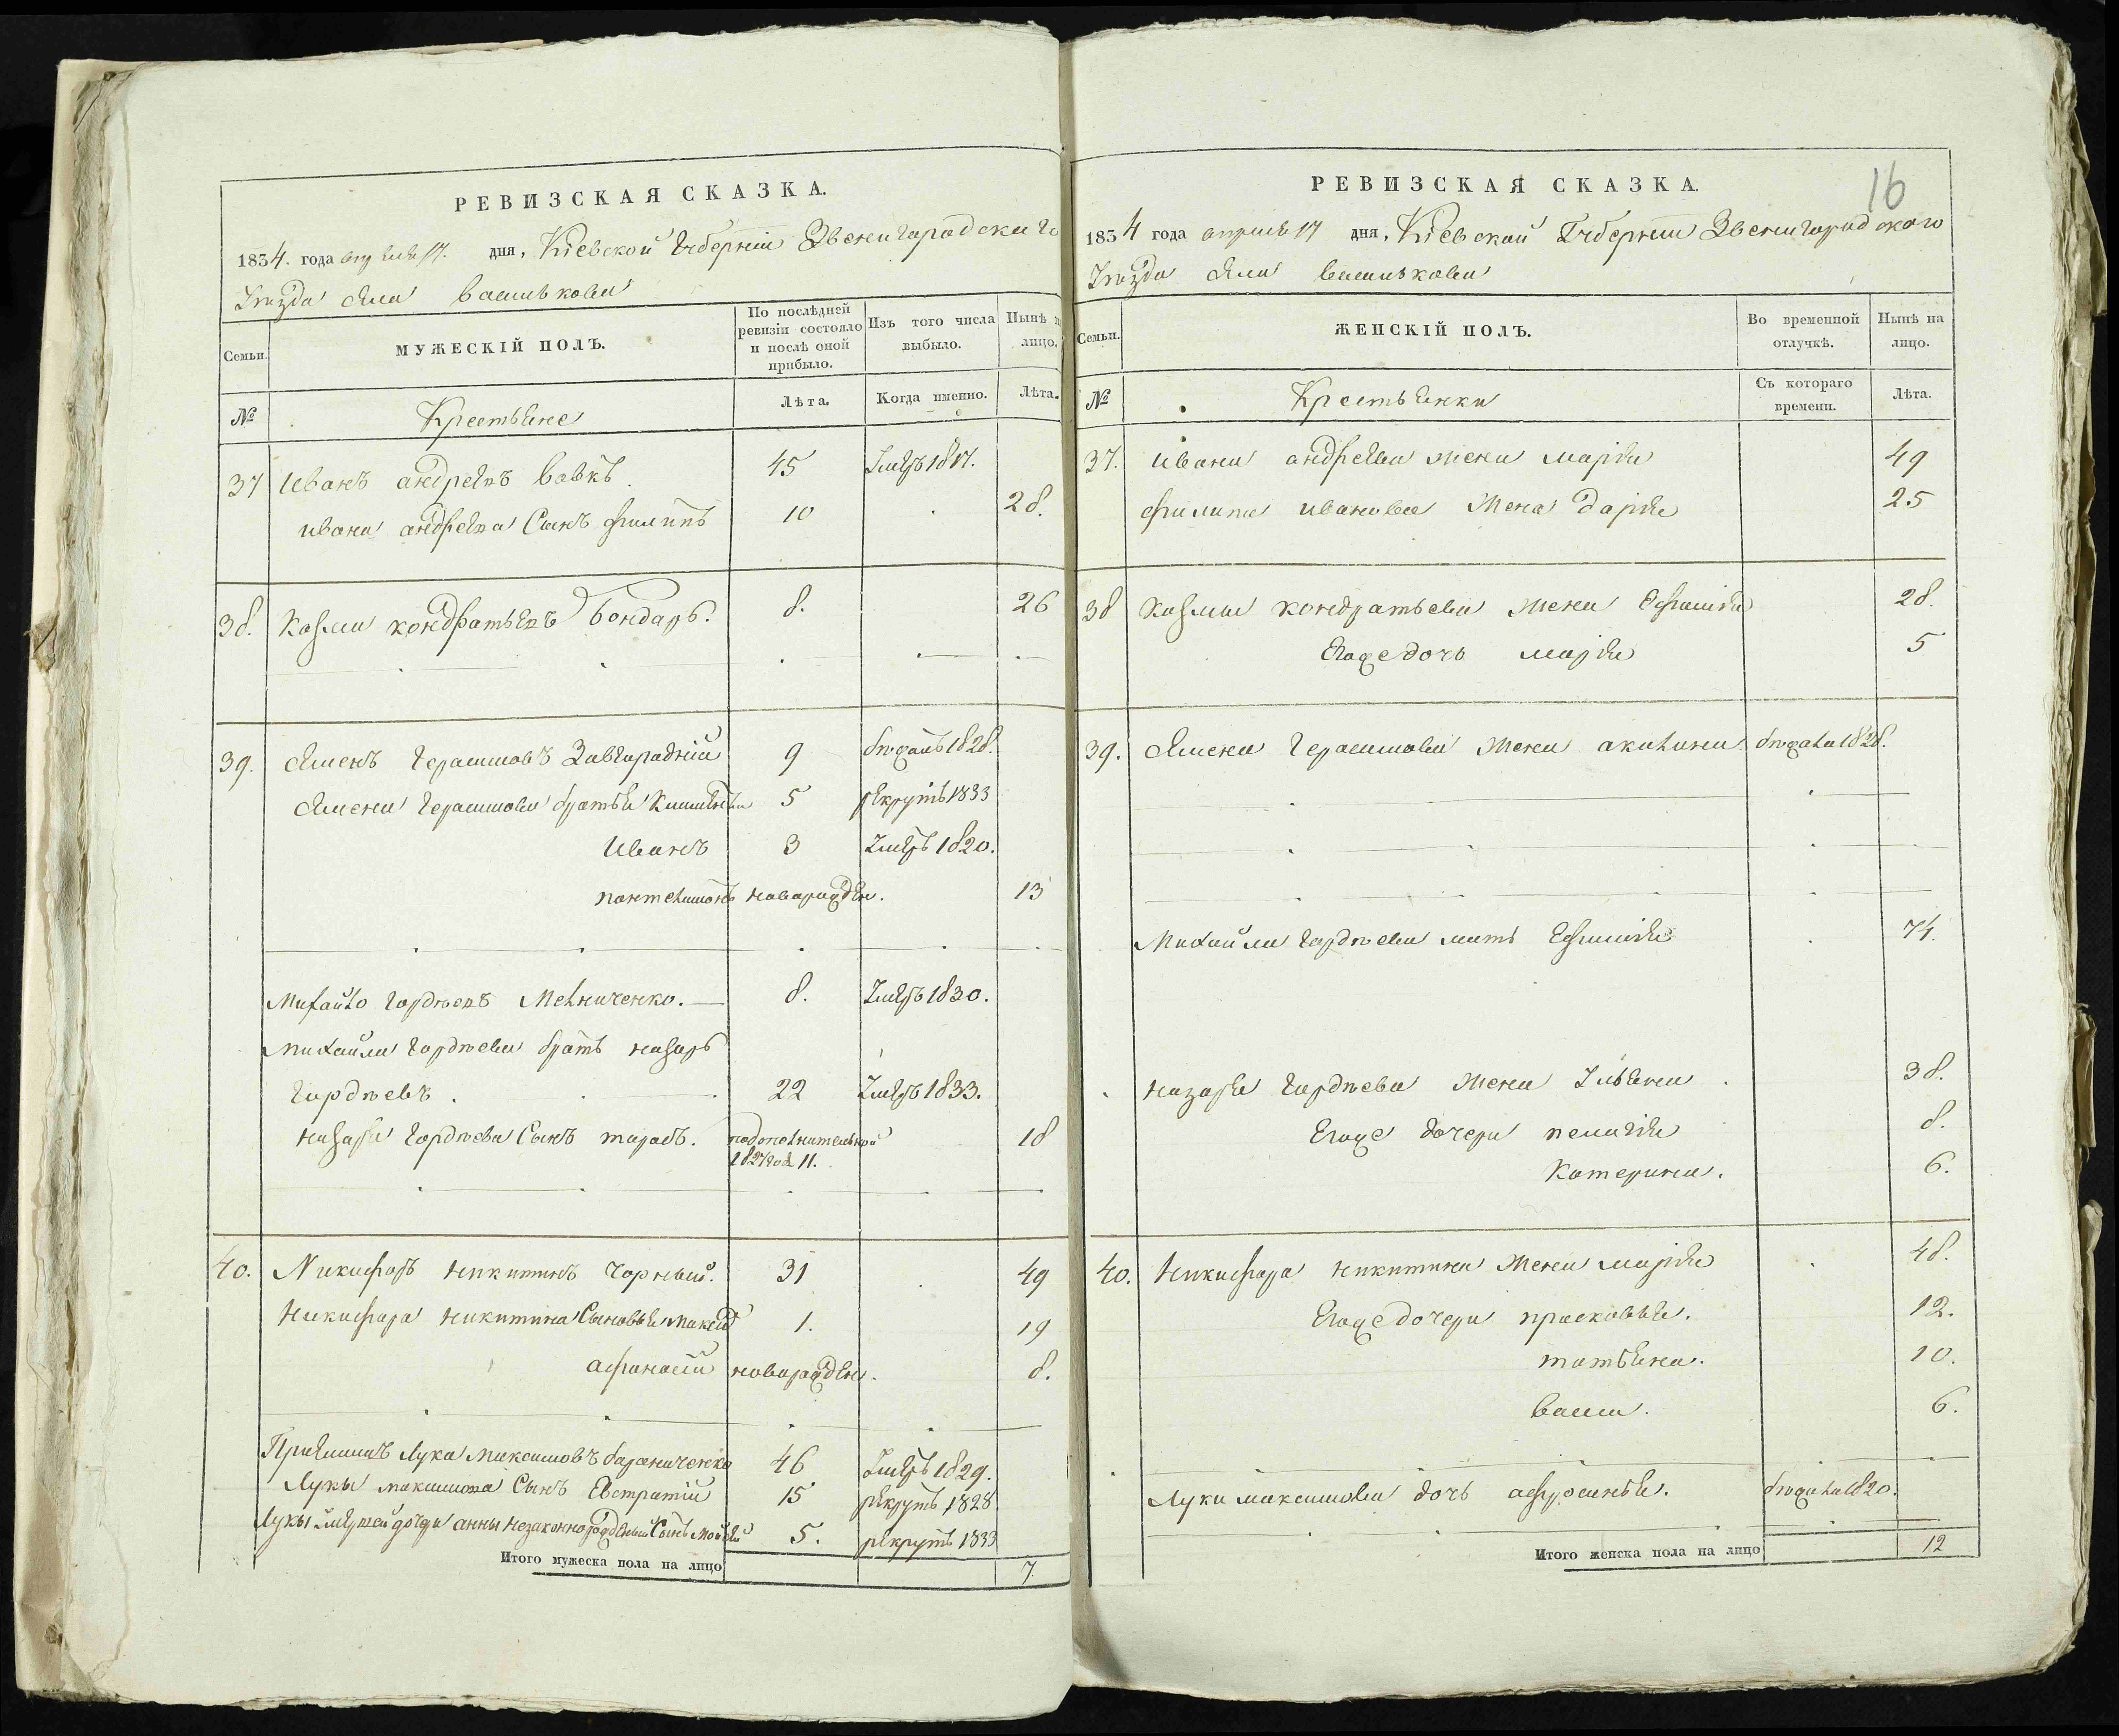 РЕВИЗСКАЯ СКАЗКА.
1834. года апреля 17. дня, Кіевской Губерніи Звенигородскаго
Уезда Села Василькова
Семьи.
МУЖЕСКІЙ ПОЛЪ.
По послѣдней ревизіи состояло и послѣ оной прибыло.
Изъ того числа выбыло.
Нынѣ на лицо.
№
Крестьяне
Лѣта.
Когда именно.
Лѣта.
37 Иванъ андреевъ вовкъ. 45 Умеръ 1817.
ивана андреева Сынъ филипъ 10 28.
38. Козма кондратьевъ Бондаръ. 8. 26
39. Семенъ Герасимовъ Завгородній 9 бъжалъ 1828.
Семена Герасимова братья 5 рекрутъ 1833
Иванъ 3 Умеръ 1820.
пантелимонъ новорожден. 13
Михайло Гордѣевъ Мелниченко. 8. Умеръ 1830.
Михайла Гордѣева братъ назаръ
Гордѣевъ. 22 Умеръ 1833.
назара Гордѣева Сынъ тарасъ. подополнительной 18
1827 год 11.
40. Никифоръ никитинъ Чорный. 31 49
Никифора никитина Сыновья максимъ 1. 19
афанасій новорожден. 8.
Пріемишъ Лука максимовъ бараниченко 46 Умеръ 1829.
Луки максимова Сынъ Евстратій 15 рекрутъ 1828
Луки умершей дочери анны незаконнорожденный Сынъ Мойсей 5. рекрутъ 1833
Итого мужеска пола на лицо 7.
16
РЕВИЗСКАЯ СКАЗКА.
1834 года апреля 17 дня, Кіевской Губерніи Звенигородского
Уезда Села Василькова
Семьи.
ЖЕНСКІЙ ПОЛЪ.
Во временной отлучкѣ.
Нынѣ на лицо.
№
Крестьянки
Съ котораго времени.
Лѣта.
37. ивана андреева жена марія 49
филипа иванова жена дарія 25
38 Козмы кондратьева жена Ефимія 28.
Егоже дочь марія 5
39. Семена Герасимова жена акилина бѣжала 1828.
Михайла Гордѣева мать Ефимія 74.
назара Гордѣева жена Уліяна 38.
Егоже дочери пелагія 8.
Катерина. 6.
40. Никифора никитина жена марія 48.
Егоже дочери прасковья. 12.
татьяна. 10.
васса. 6.
Луки максимова дочь афросинья. бѣжала 1820.
Итого женска пола на лицо 12